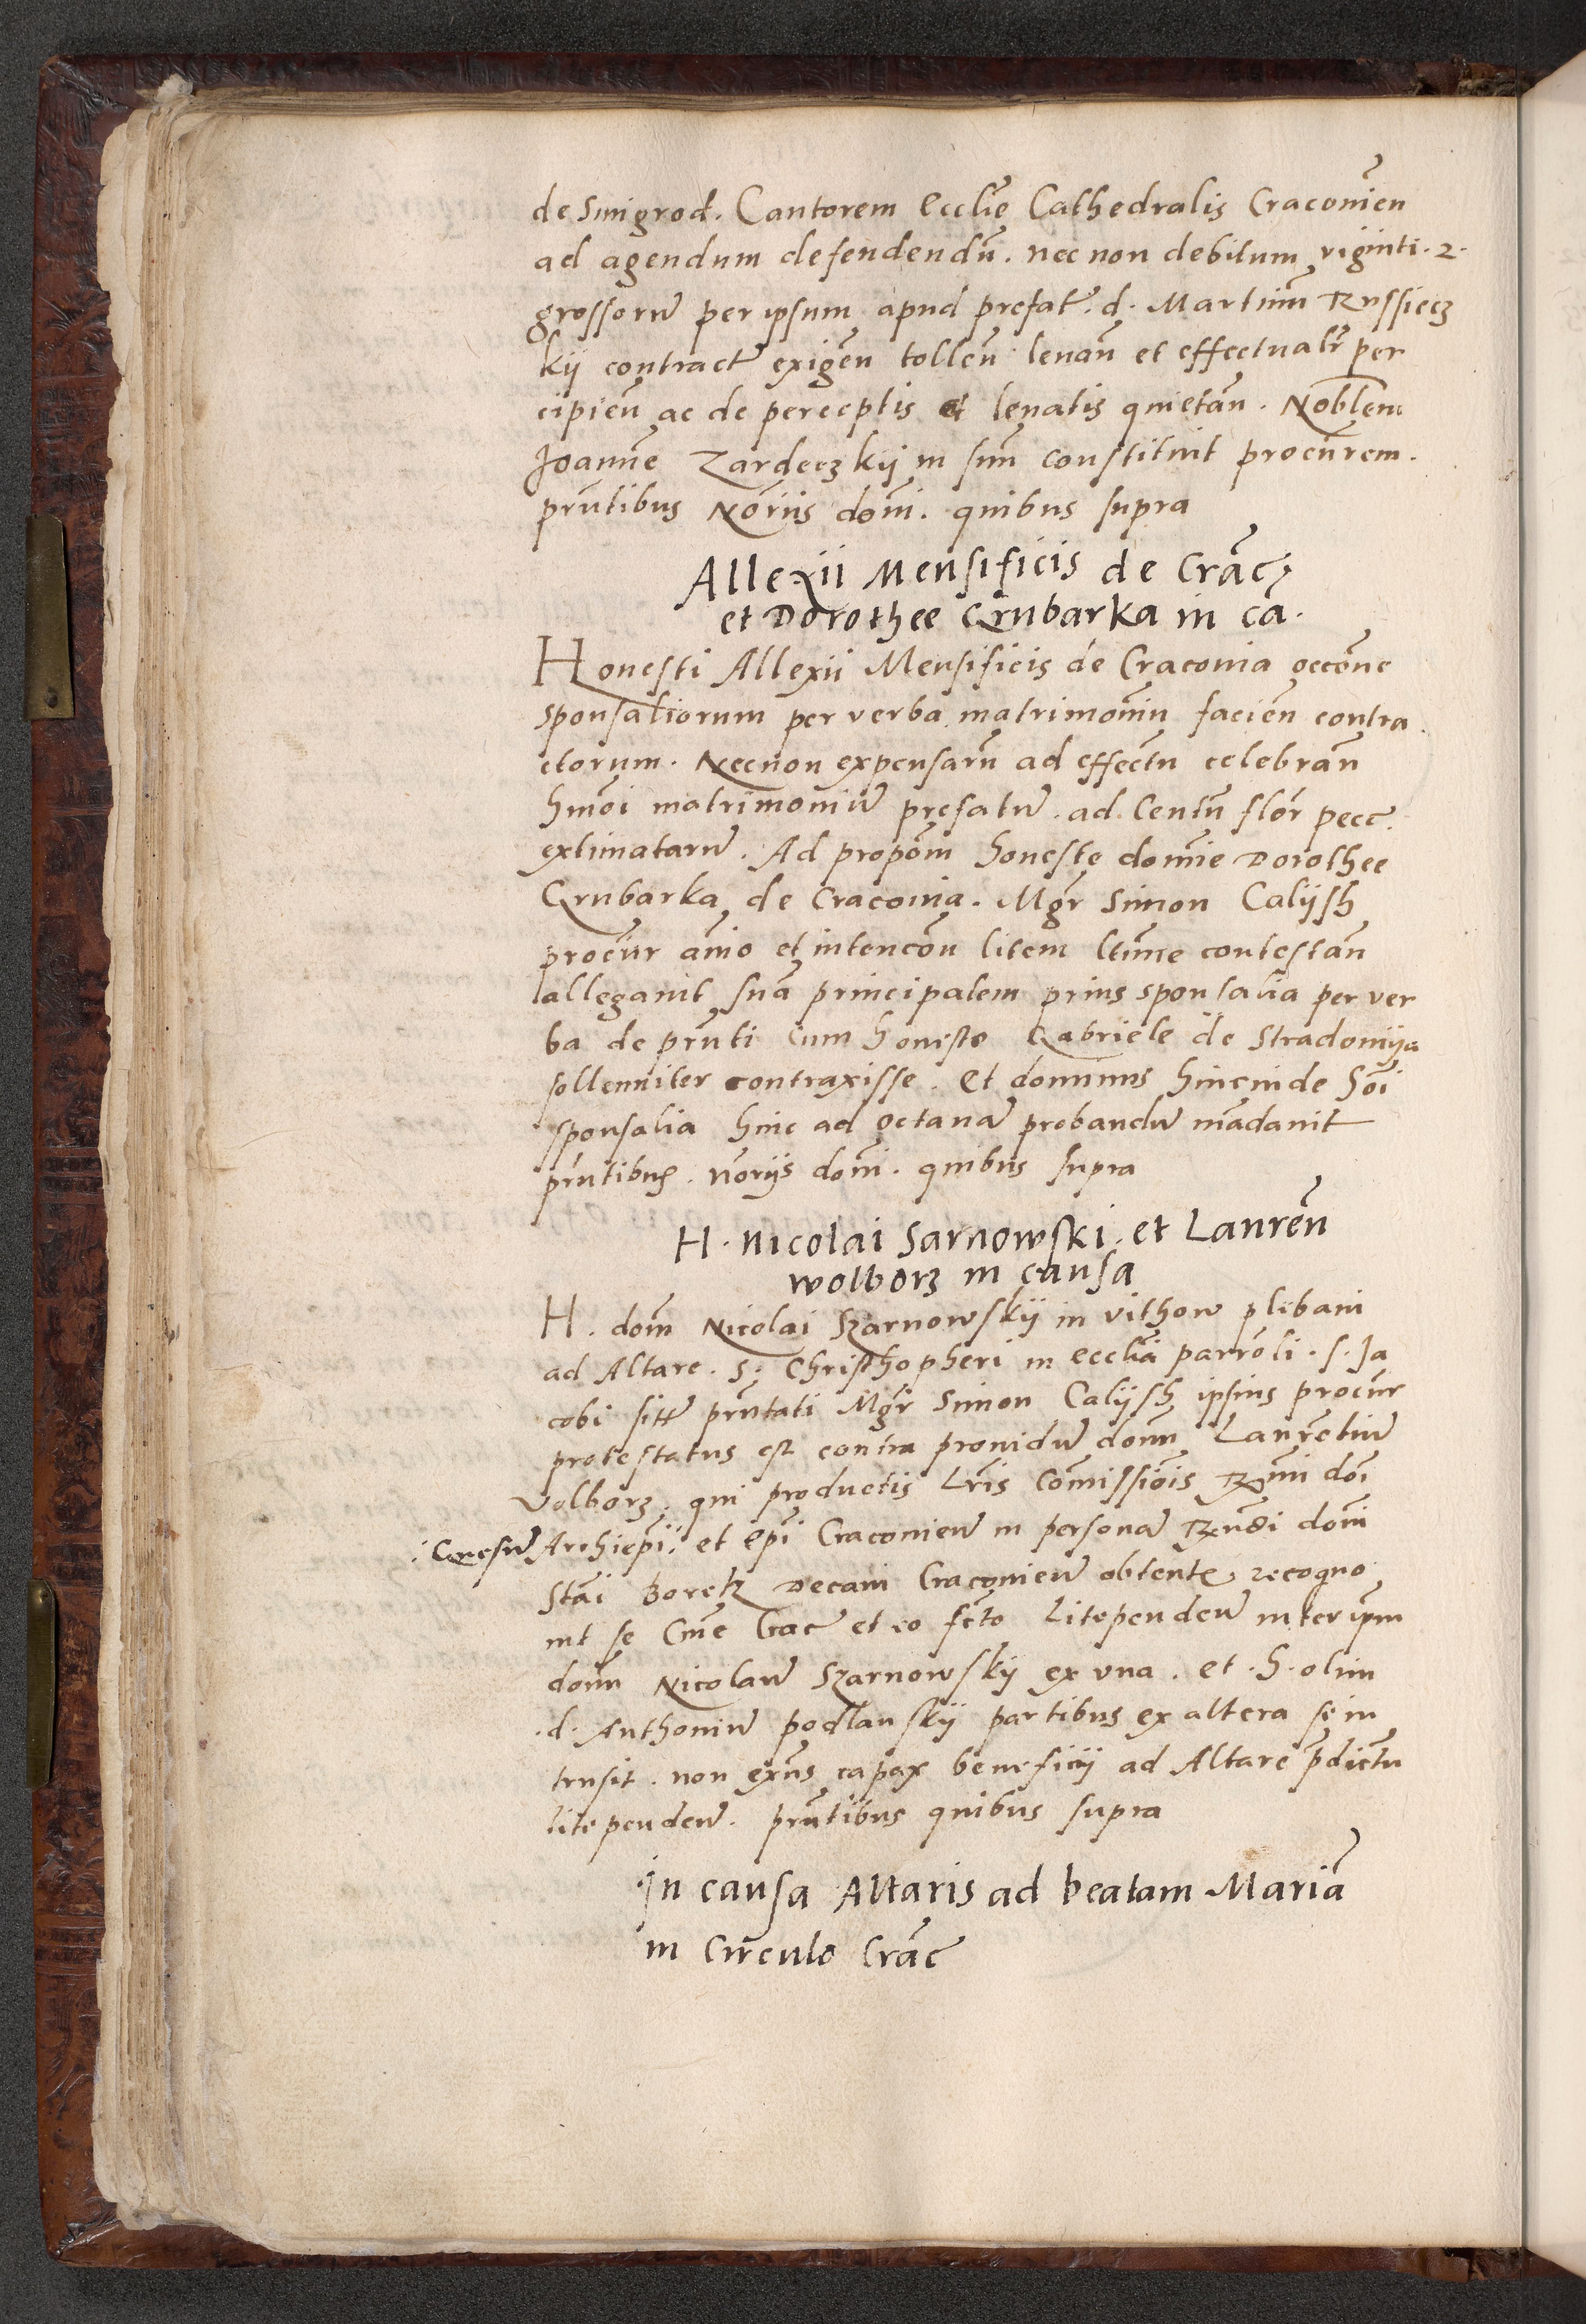 de Smigrod. Cantorem Ecclie Cathedralis Cracouień
ad agendum defendendū. nec non debitum viginti. 2.
grossorū per ipsum apud prefat. d. Martinū Russiecz
kij contract exigeñ tolleñ levañ et effectualr̃ per
cipieñ ac de perceptis et levatis quietañ. Noblem
Joannē Zardeczkij in suū constituit procurem.
prñtibus Noriis domi. quibus supra
Allexii Mensificis de Crac̃
et Dorothee Grubarka in ca.
Honesti Allexii Mensificis de Craconia occōne
sponsaliorum per verba matrimoniū facień contra
ctorum. Necnon expensarū ad effectū celebrañ
hmōi matrimoniū prefatū. ad Centū flor̃ pecc̃.
extimatarū. Ad propōm honeste domīe Dorothee
Grubarka de Cracouia. Mgr̃ Simon Calijsh
procur̃ aīo et intencōn litem ltīme contestañ
allegavit suā principalem prius sponsalia per ver
ba de prñti cum honesto Gabriele de Stradomija
sollenniter contraxisse. Et dominus hincinde hōi
sponsalia hinc ad octavā probandū mādavit
prñtibus. noriis domi. quibus supra
H. Nicolai Sarnowski. et Laureñ
wolborz in causa
H. dom̄ Nicolai Szarnowskij in vithow plebani
ad Altare. S. Christhopheri in ecclia parroli. s. Ja
cobi sitt̃ prñtati Mgr̃ Simon Calijsh ipsius procur
protestatus est contra providū domū Laurētiū
Volborz. qui productis Lris Commissiōis Rmi doi
: Gnesnē Archiepi: et Epi Cracouień in personā Rndi domi
Stai Borek Decani Cracouień obtente recogno
nit se Cīue Crac̃ et eo fcto Litependeñ inter ipm
domū Nicolaū Szarnowskij ex vna. et. h. olim
.d. Anthoniū podlauskij partibus ex altera se in
trusit. non exñs capax beneficij ad Altare p̄dictū
litependeñ. prñtibus quibus supra
In causa Altaris ad beatam Mariā
in Circulo Crac̃